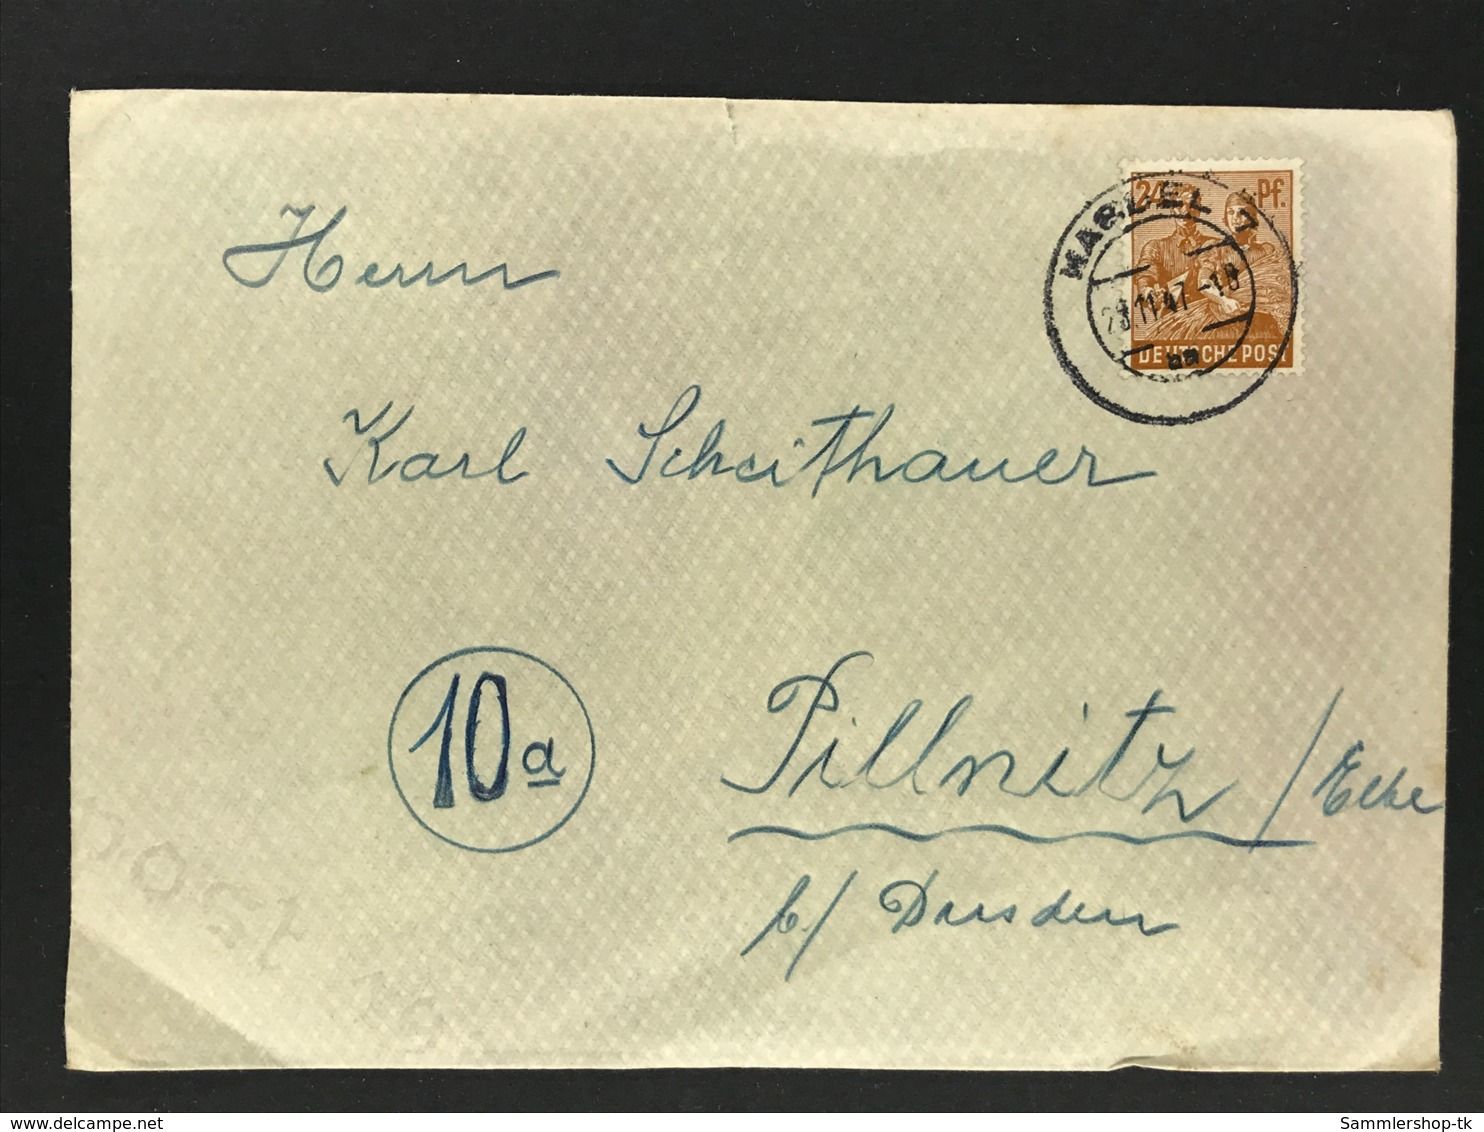 24 Pf.
KASSEL 7
28.11.47.-18
DEUTSCHE POST
Herrn
Karl Scheithauer
10a
Pillnitz / Elbe
b/ Dresden
delcampe.net
Sammlershop-tk